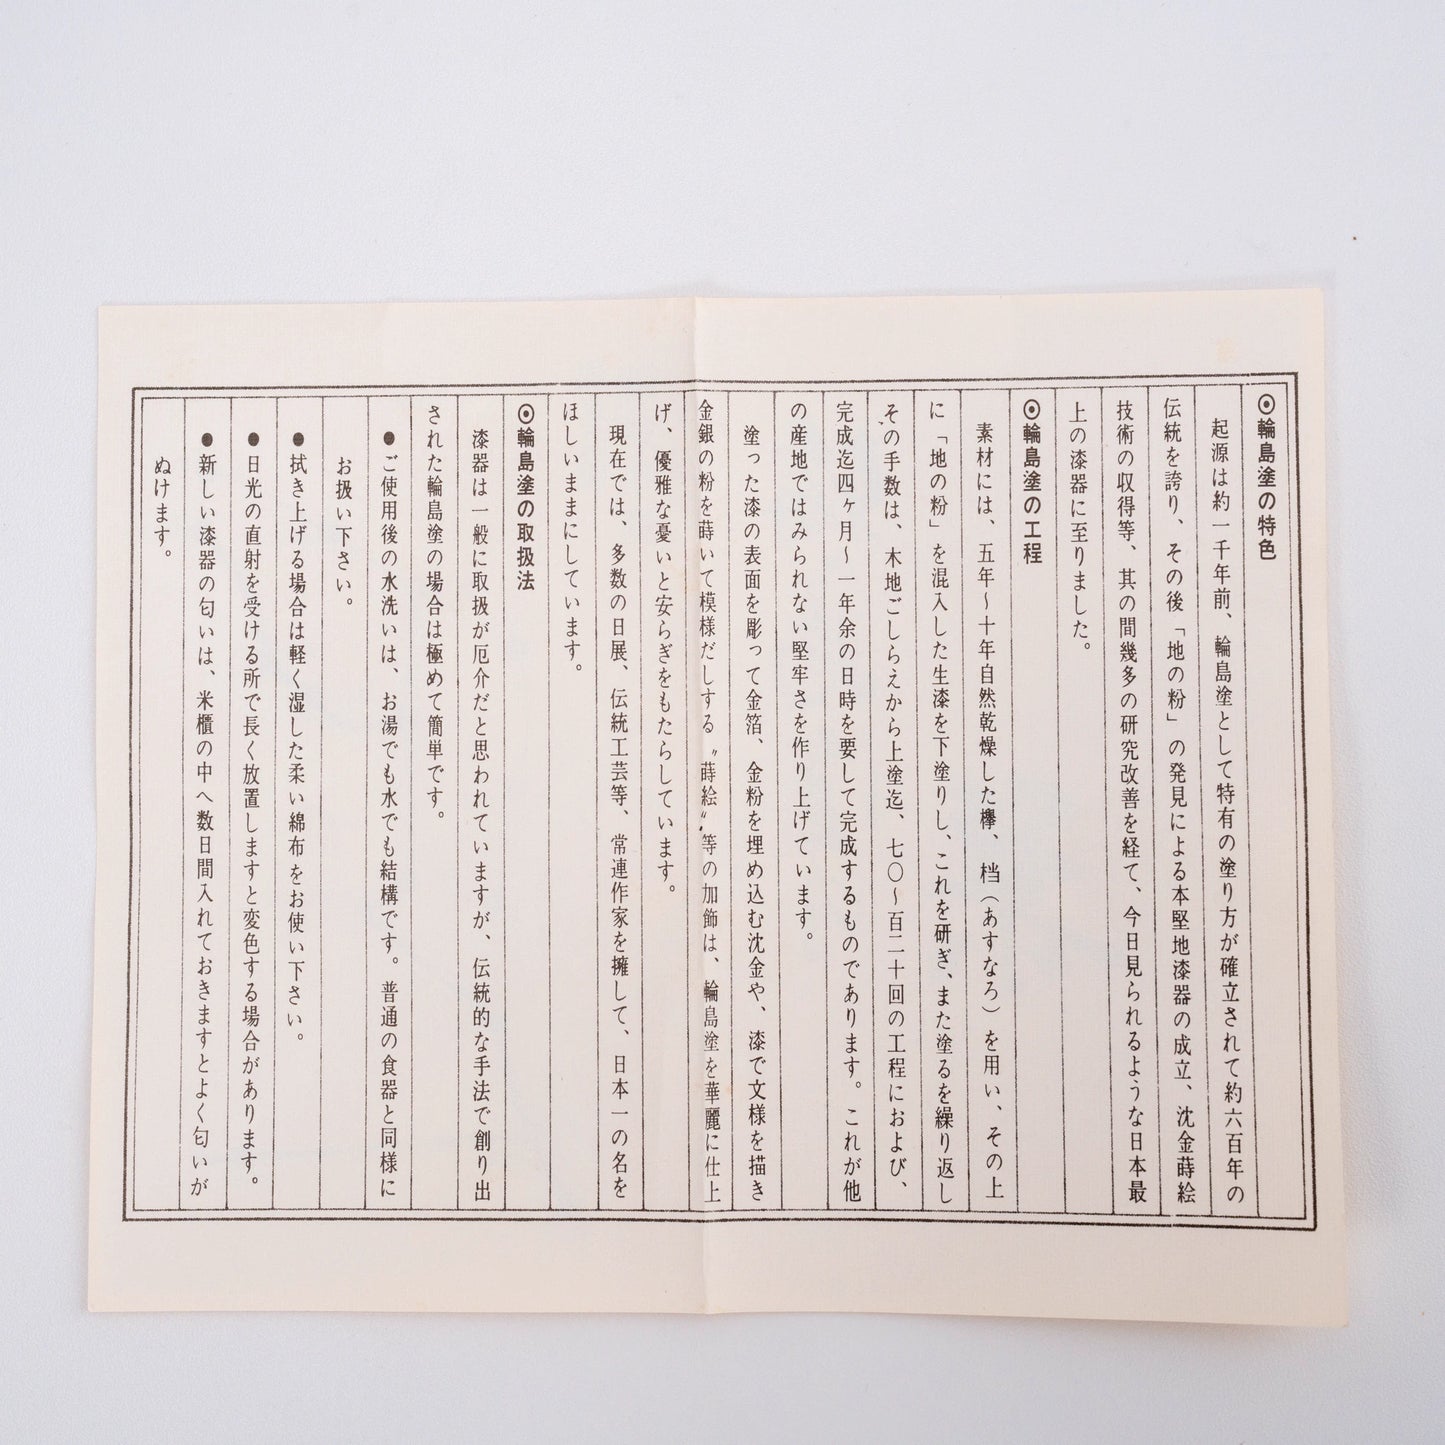 ⦿輪島塗の特色
起源は約一千年前、輪島塗として特有の塗り方が確立されて約六百年の
伝統を誇り、その後「地の粉」の発見による本堅地漆器の成立、沈金蒔絵
技術の収得等、其の間幾多の研究改善を経て、今日見られるような日本最
上の漆器に至りました。
⦿輪島塗の工程
素材には、五年～十年自然乾燥した欅、档(あすなろ)を用い、その上
に「地の粉」を混入した生漆を下塗りし、これを研ぎ、また塗るを繰り返し
その手数は、木地ごしらえから上塗迄、七〇～百二十回の工程におよび、
完成迄四ヶ月～一年余の日時を要して完成するものであります。これが他
の産地ではみられない堅牢さを作り上げています。
塗った漆の表面を彫って金箔、金粉を埋め込む沈金や、漆で文様を描き
金銀の粉を蒔いて模様だしする〝蒔絵〟等の加飾は、輪島塗を華麗に仕上
げ、優雅な憂いと安らぎをもたらしています。
現在では、多数の日展、伝統工芸等、常連作家を擁して、日本一の名を
ほしいままにしています。
⦿輪島塗の取扱法
漆器は一般に取扱が厄介だと思われていますが、伝統的な手法で創り出
された輪島塗の場合は極めて簡単です。
●ご使用後の水洗いは、お湯でも水でも結構です。普通の食器と同様に
お扱い下さい。
●拭き上げる場合は軽く湿した柔い綿布をお使い下さい。
●日光の直射を受ける所で長く放置しますと変色する場合があります。
●新しい漆器の匂いは、米櫃の中へ数日間入れておきますとよく匂いが
ぬけます。